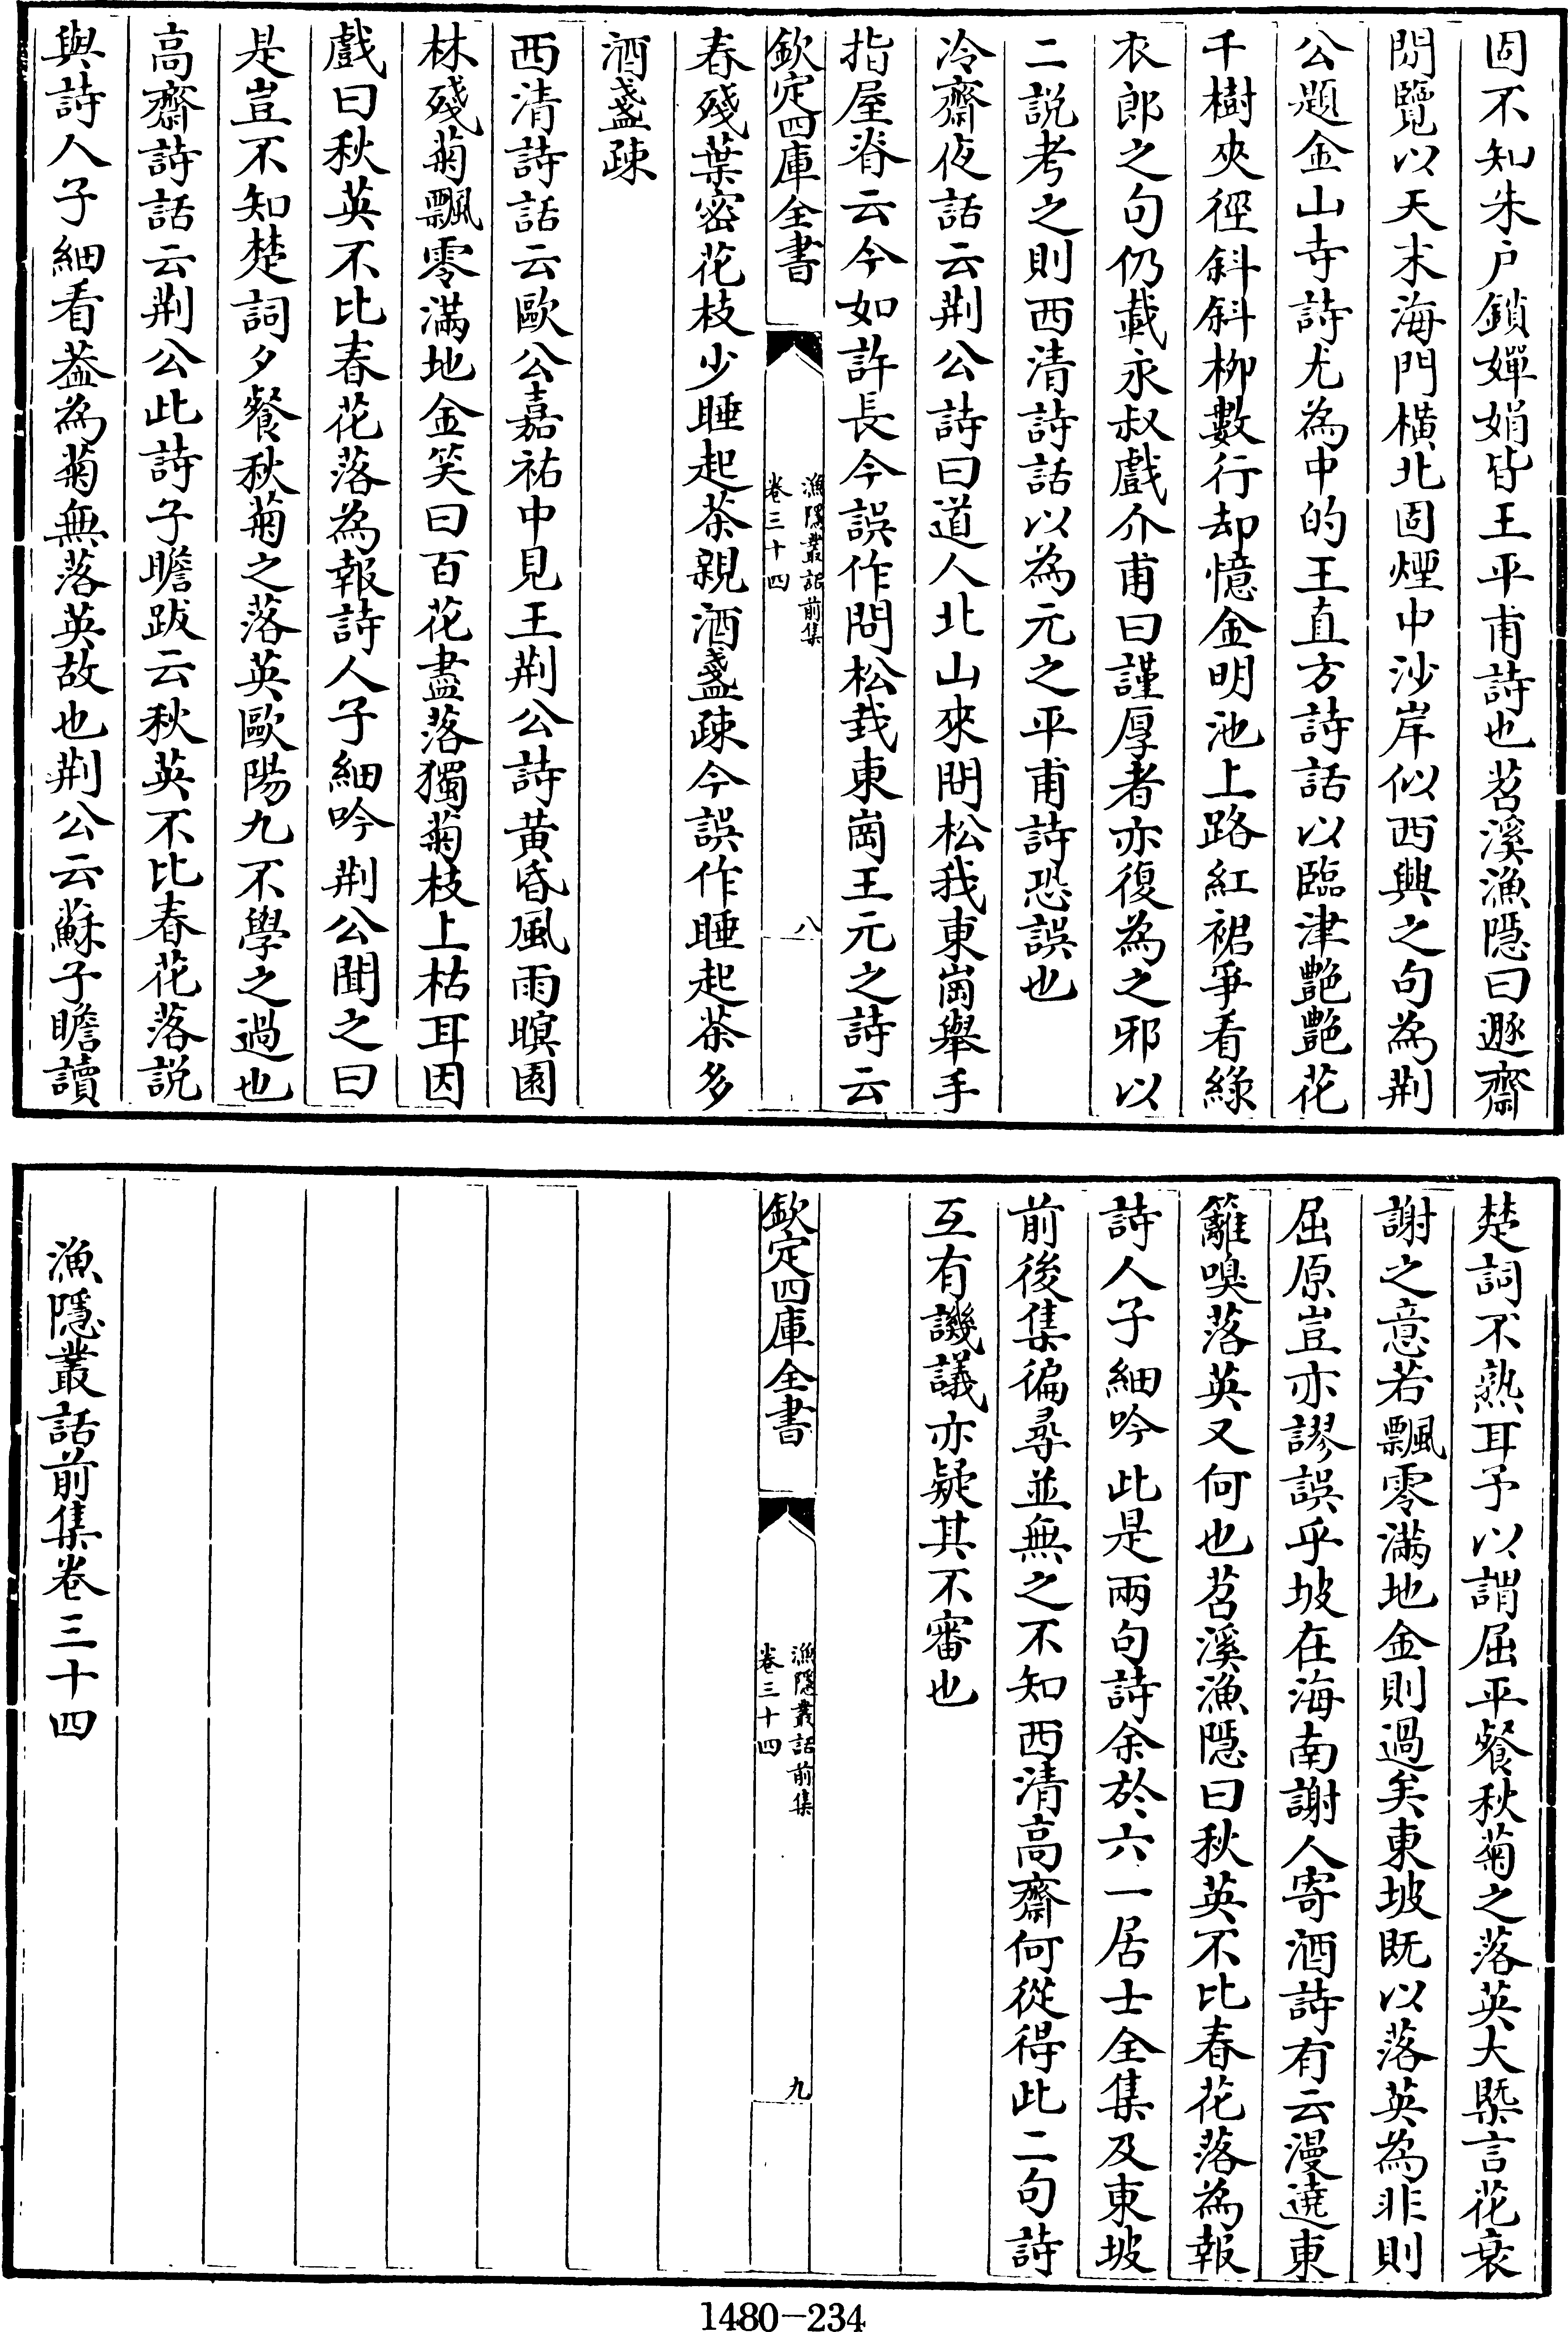 固不知朱户鎖嬋娟皆王平甫詩也苕溪漁隱曰遯齋
閒覽以天末海門横北固煙中沙岸似西興之句為荆
公題金山寺詩尤為中的王直方詩話以臨津艷艷花
千樹夾徑斜斜柳數行却憶金明池上路紅裙爭看綠
衣郎之句仍載永叔戲介甫曰謹厚者亦復為之邪以
二説考之則西清詩話以為元之平甫詩恐誤也
冷齋夜話云荆公詩曰道人北山來問松我東崗舉手
指屋脊云今如許長今誤作問松栽東崗王元之詩云
欽定四庫全書
漁隱叢話前集
卷三十四
八
春殘葉密花枝少睡起茶親酒盞疎今誤作睡起茶多
酒盞疎
西清詩話云歐公嘉祐中見王荆公詩黄昏風雨暝園
林殘菊飄零滿地金笑曰百花盡落獨菊枝上枯耳因
戲曰秋英不比春花落為報詩人子細吟荆公聞之曰
是豈不知楚詞夕餐秋菊之落英歐陽九不學之過也
高齋詩話云荆公此詩子瞻跋云秋英不比春花落説
與詩人子細看葢為菊無落英故也荆公云蘇子瞻讀
楚詞不熟耳予以謂屈平餐秋菊之落英大槩言花衰
謝之意若飄零滿地金則過矣東坡既以落英為非則
屈原豈亦謬誤乎坡在海南謝人寄酒詩有云漫遶東
籬嗅落英又何也苕溪漁隱曰秋英不比春花落為報
詩人子細吟此是兩句詩余於六一居士全集及東坡
前後集徧尋並無之不知西清高齋何從得此二句詩
互有譏議亦疑其不審也
欽定四庫全書
漁隱叢話前集
卷三十四
九
漁隱叢話前集卷三十四
1480-234